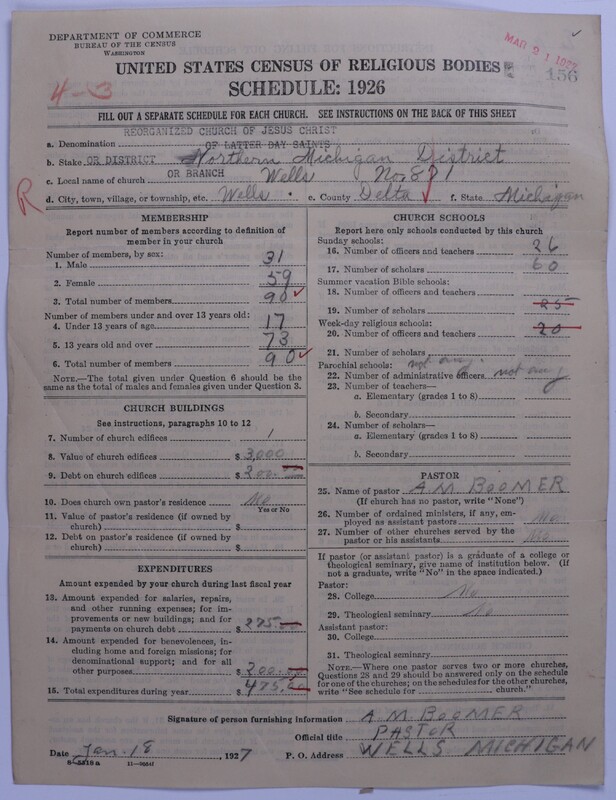 DEPARTMENT OF COMMERCE
BUREAU OF THE CENSUS
WASHINGTON
MAR 21 1927
156
UNITED STATES CENSUS OF RELIGIOUS BODIES
SCHEDULE: 1926
4-3
FILL OUT A SEPARATE SCHEDULE FOR EACH CHURCH. SEE INSTRUCTIONS ON THE BACK OF THIS SHEET
REORGANIZED CHURCH OF JESUS CHRIST
a. Denomination OF LATTER DAY SAINTS
b. Stake OR DISTRICT Northern Michigan District
c. Local name of church OR BRANCH Wells No. 871
R
d. City, town, village, or township, etc. Wells e. County Delta f. State Michigan
MEMBERSHIP
Report number of members according to definition of member in your church
Number of members, by sex:
1. Male 31
2. Female 59
3. Total number of members 90
Number of members under and over 13 years old:
4. Under 13 years of age 17
5. 13 years old and over 73
6. Total number of members 90
NOTE.—The total given under Question 6 should be the same as the total of males and females given under Question 3.
CHURCH BUILDINGS
See instructions, paragraphs 10 to 12
7. Number of church edifices 1
8. Value of church edifices $ 3,000
9. Debt on church edifices $ 200.
10. Does church own pastor's residence No
Yes or No
11. Value of pastor's residence (if owned by church) $
12. Debt on pastor's residence (if owned by church) $
EXPENDITURES
Amount expended by your church during last fiscal year
13. Amount expended for salaries, repairs, and other running expenses; for improvements or new buildings; and for payments on church debt $ 275.00
14. Amount expended for benevolences, including home and foreign missions; for denominational support; and for all other purposes $ 200.00
15. Total expenditures during year $ 475.00
CHURCH SCHOOLS
Report here only schools conducted by this church
Sunday schools:
16. Number of officers and teachers 26
17. Number of scholars 60
Summer vacation Bible schools:
18. Number of officers and teachers
19. Number of scholars 25
Week-day religious schools:
20. Number of officers and teachers 20
21. Number of scholars
Parochial schools: not any.
22. Number of administrative officers not any
23. Number of teachers—
a. Elementary (grades 1 to 8)
b. Secondary
24. Number of scholars—
a. Elementary (grades 1 to 8)
b. Secondary
PASTOR
25. Name of pastor A. M. BOOMER
(If church has no pastor, write "None")
26. Number of ordained ministers, if any, employed as assistant pastors No
27. Number of other churches served by the pastor or his assistants No
If pastor (or assistant pastor) is a graduate of a college or theological seminary, give name of institution below. (If not a graduate, write "No" in the space indicated.)
Pastor:
28. College No
29. Theological seminary No
Assistant pastor:
30. College
31. Theological seminary
NOTE.—Where one pastor serves two or more churches, Questions 28 and 29 should be answered only on the schedule for one of the churches; on the schedules for the other churches, write "See schedule for church."
Signature of person furnishing information A M BOOMER
Official title PASTOR
Date Jan. 18, 1927 P. O. Address WELLS MICHIGAN